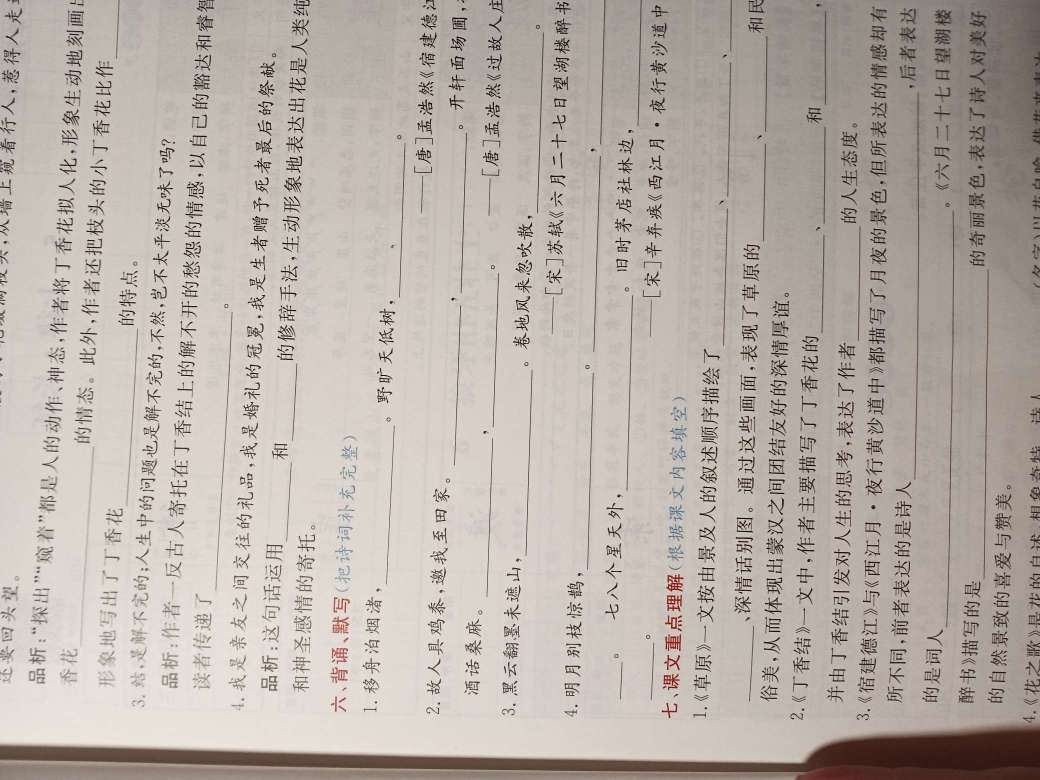 还要回头望。
品析:“探出”“窥着”都是人的动作、神态,作者将丁香花拟人化,形象生动地刻画出
香花________的情态。此外,作者还把枝头的小丁香花比作________
形象地写出了丁香花________的特点。
3. 结,是解不完的;人生中的问题也是解不完的,不然,岂不太平淡无味了吗?
品析:作者一反古人寄托在丁香结上的解不开的愁怨的情感,以自己的豁达和睿智
读者传递了________。
4. 我是亲友之间交往的礼品,我是婚礼的冠冕,我是生者赠予死者最后的祭献。
品析:这句话运用________和________的修辞手法,生动形象地表达出花是人类纯
和神圣感情的寄托。
六、背诵、默写(把诗词补充完整)
1. 移舟泊烟渚,________。野旷天低树,________。
——[唐]孟浩然《宿建德江
2. 故人具鸡黍,邀我至田家。________,________。开轩面场圃,
酒话桑麻。________,________。——[唐]孟浩然《过故人庄
3. 黑云翻墨未遮山,________。卷地风来忽吹散,________。
——[宋]苏轼《六月二十七日望湖楼醉书
4. 明月别枝惊鹊,________。________,________
________。七八个星天外,________。旧时茅店社林边,________
________。——[宋]辛弃疾《西江月·夜行黄沙道中
七、课文重点理解(根据课文内容填空)
1.《草原》一文按由景及人的叙述顺序描绘了________、________、
________、深情话别图。通过这些画面,表现了草原的________、________和民
俗美,从而体现出蒙汉之间团结友好的深情厚谊。
2.《丁香结》一文中,作者主要描写了丁香花的________、________和________,
并由丁香结引发对人生的思考,表达了作者________的人生态度。
3.《宿建德江》与《西江月·夜行黄沙道中》都描写了月夜的景色,但所表达的情感却有
所不同,前者表达的是诗人________,后者表达
的是词人________。《六月二十七日望湖楼
醉书》描写的是________的奇丽景色,表达了诗人对美好
的自然景致的喜爱与赞美。